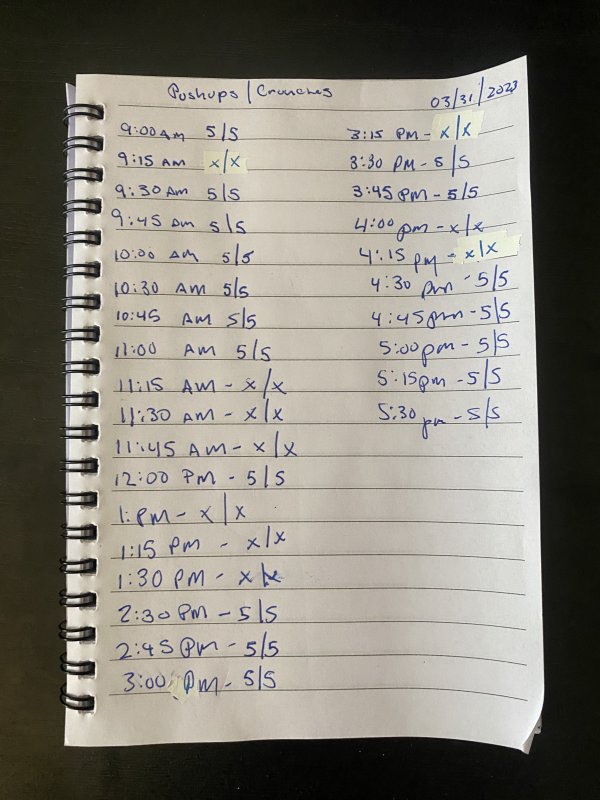 Pushups / Crunches
03/31/2023
9:00 AM 5/5
9:15 AM x/x
9:30 AM 5/5
9:45 AM 5/5
10:00 AM 5/5
10:30 AM 5/5
10:45 AM 5/5
11:00 AM 5/5
11:15 AM - x/x
11:30 AM - x/x
11:45 AM - x/x
12:00 PM - 5/5
1: PM - x/x
1:15 PM - x/x
1:30 PM - x/x
2:30 PM - 5/5
2:45 PM - 5/5
3:00 PM - 5/5
3:15 PM - x/x
3:30 PM - 5/5
3:45 PM - 5/5
4:00 pm - x/x
4:15 pm - x/x
4:30 pm - 5/5
4:45 pm - 5/5
5:00 pm - 5/5
5:15 pm - 5/5
5:30 pm - 5/5